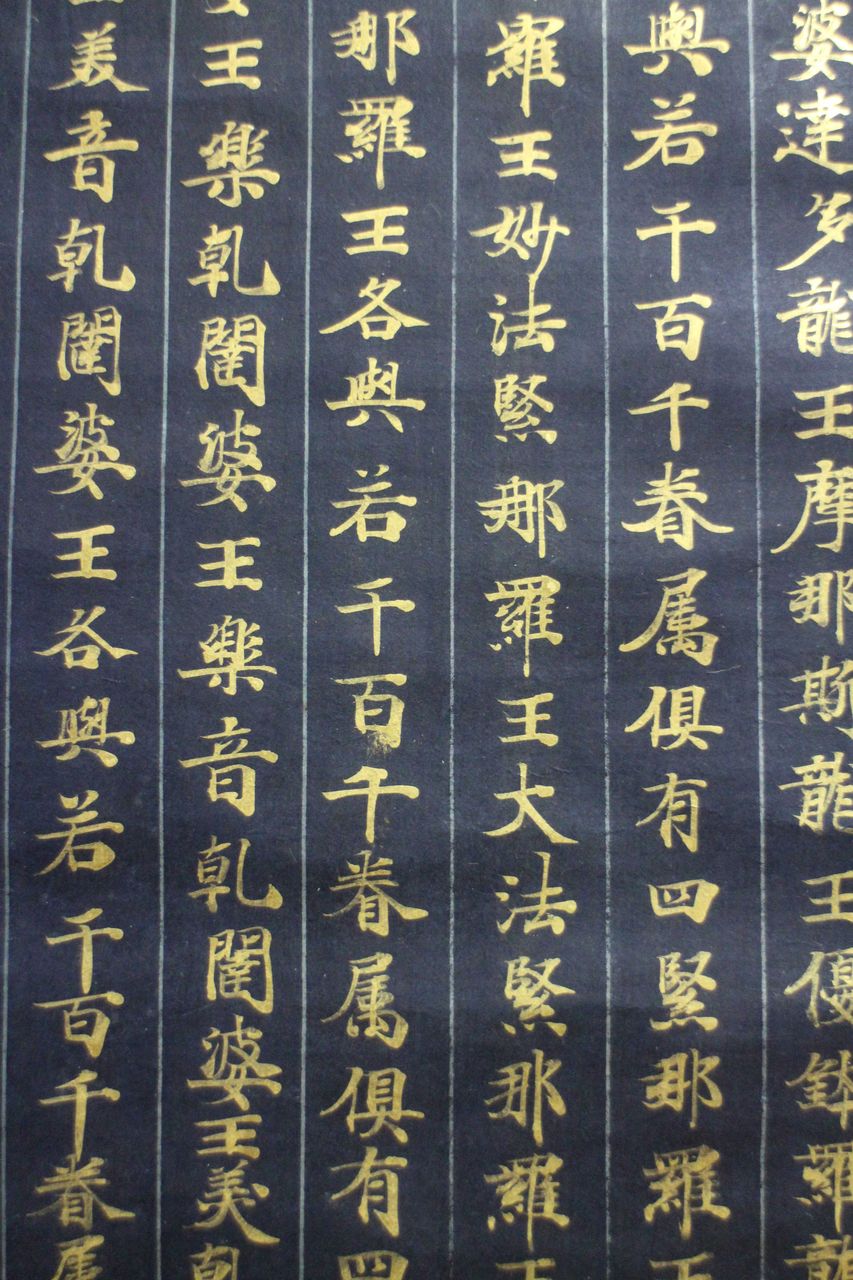 婆達多龍王摩那斯龍王優鉢羅龍
與若千百千眷属俱有四緊那羅王
羅王妙法緊那羅王大法緊那羅王
那羅王各與若千百千眷属俱有四
王樂乹闥婆王樂音乹闥婆王美乹
美音乹闥婆王各與若千百千眷属